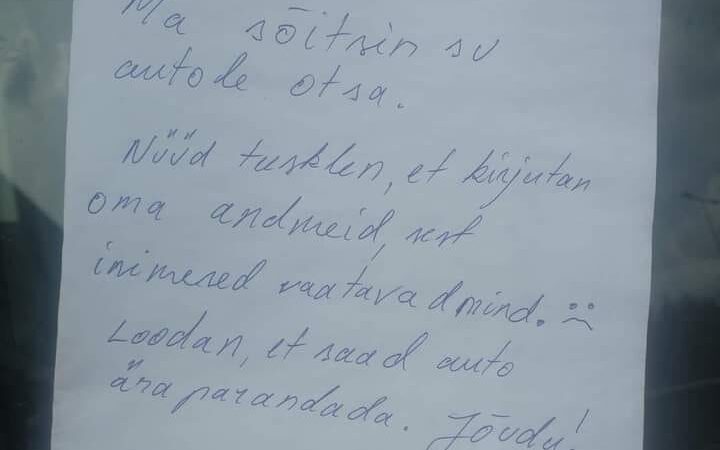 Ma sõitsin su
autode otsa.
Nüüd tusklen, et kirjutan
oma andmeid, sest
inimesed vaatavad mind. :(
Loodan, et saad auto
ära parandada. Jõudu!